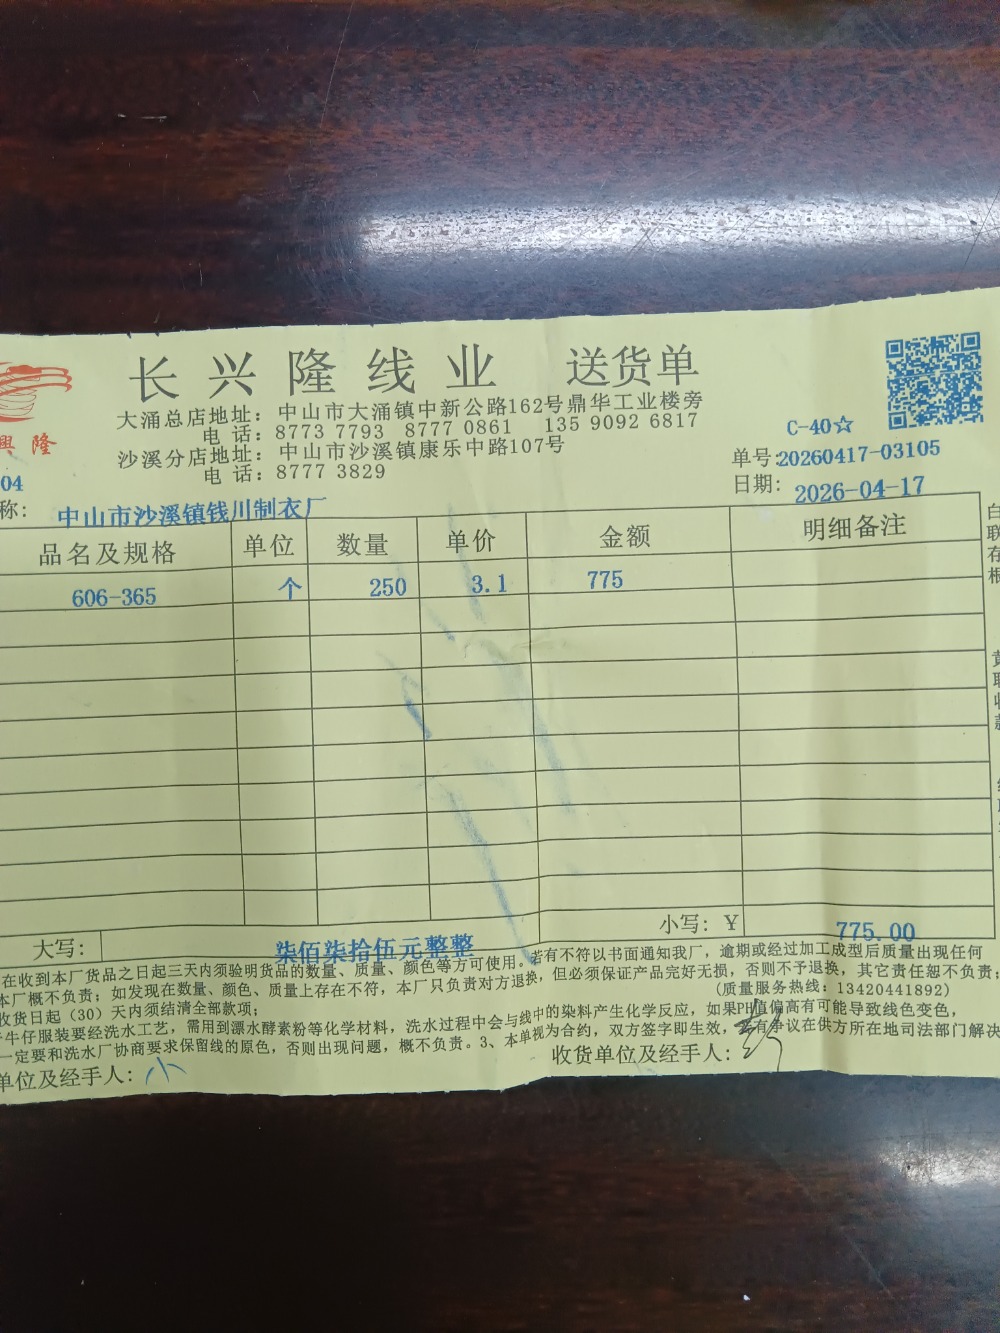 长兴隆线业 送货单
大涌总店地址：中山市大涌镇中新公路162号鼎华工业楼旁
电 话：8773 7793 8777 0861 135 9092 6817
沙溪分店地址：中山市沙溪镇康乐中路107号
电 话：8777 3829
興 隆
C-40☆
单号:20260417-03105
日期： 2026-04-17
04
称： 中山市沙溪镇钱川制衣厂
品名及规格 单位 数量 单价 金额 明细备注
606-365 个 250 3.1 775
白联存根
大写： 柒佰柒拾伍元整整 小写：￥ 775.00
在收到本厂货品之日起三天内须验明货品的数量、质量、颜色等方可使用。若有不符以书面通知我厂，逾期或经过加工成型后质量出现任何
本厂概不负责；如发现在数量、颜色、质量上存在不符，本厂只负责对方退换，但必须保证产品完好无损，否则不予退换，其它责任恕不负责；
(质量服务热线：13420441892)
收货日起（30）天内须结清全部款项；
牛仔服装要经洗水工艺，需用到漂水酵素粉等化学材料，洗水过程中会与线中的染料产生化学反应，如果PH值偏高有可能导致线色变色，
一定要和洗水厂协商要求保留线的原色，否则出现问题，概不负责。3、本单视为合约，双方签字即生效，有争议在供方所在地司法部门解决
单位及经手人：小 收货单位及经手人：